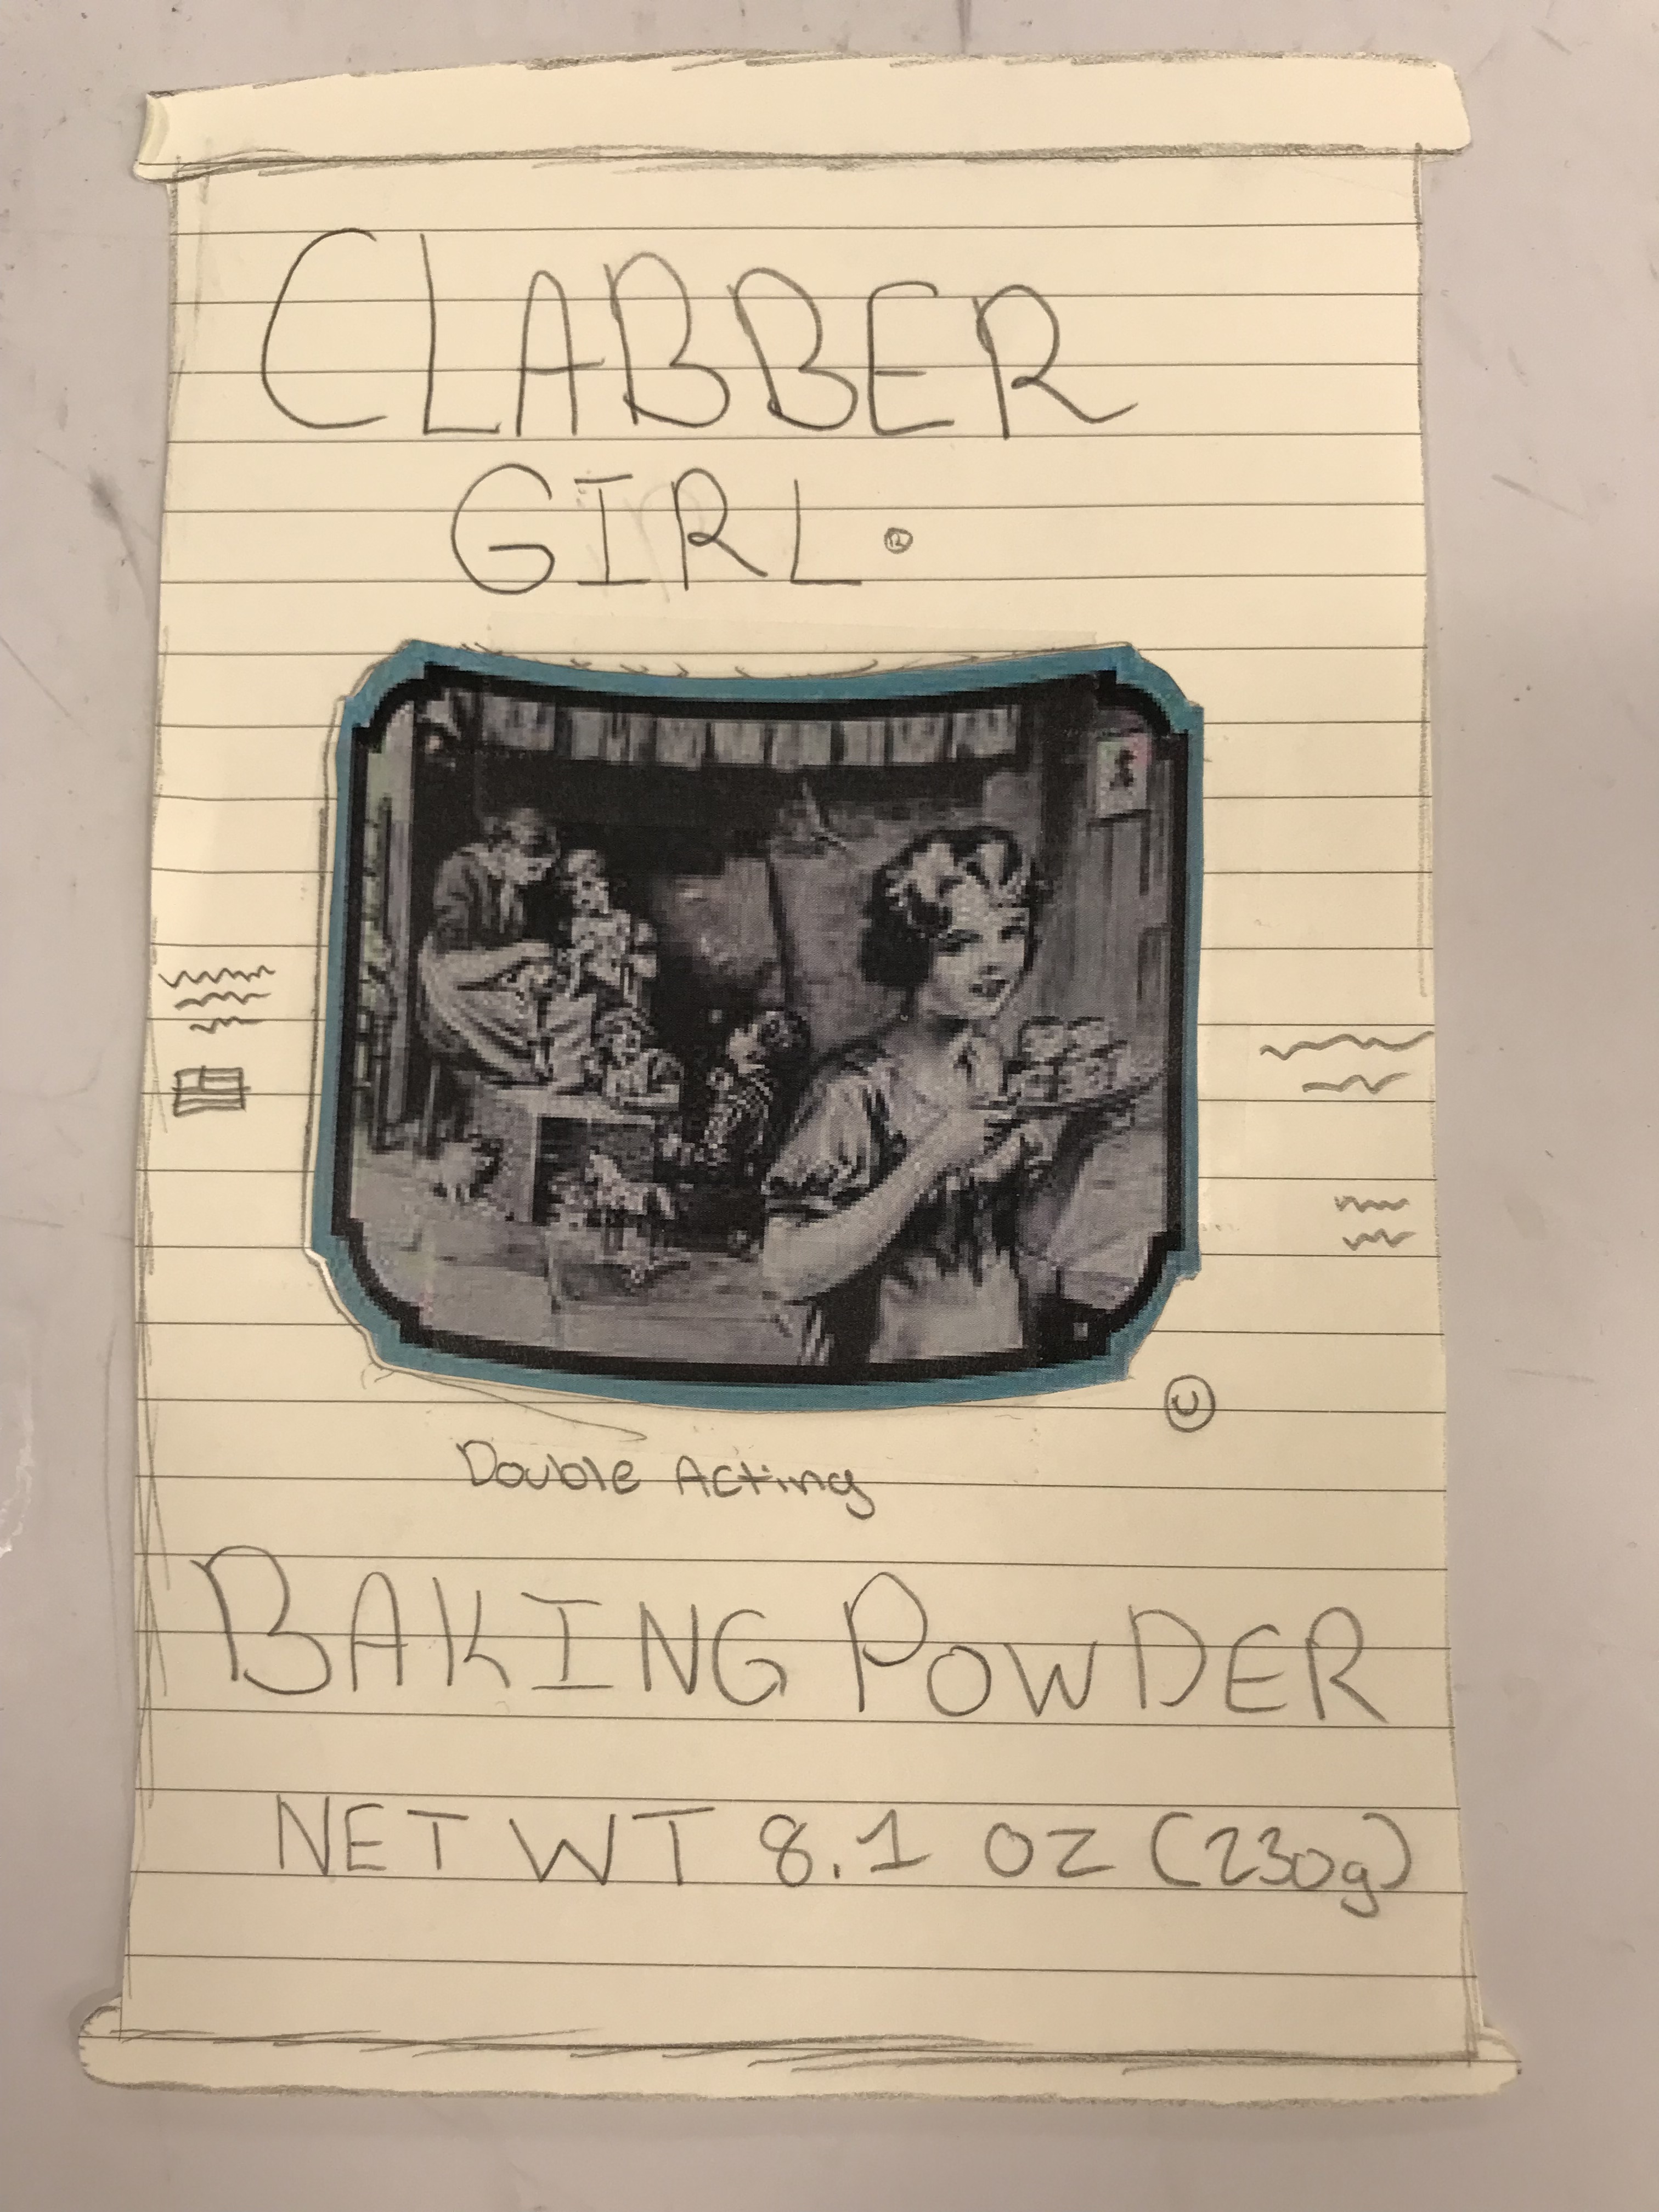 CLABBER
GIRL®
U
Double Acting
BAKING POWDER
NET WT 8.1 OZ (230g)